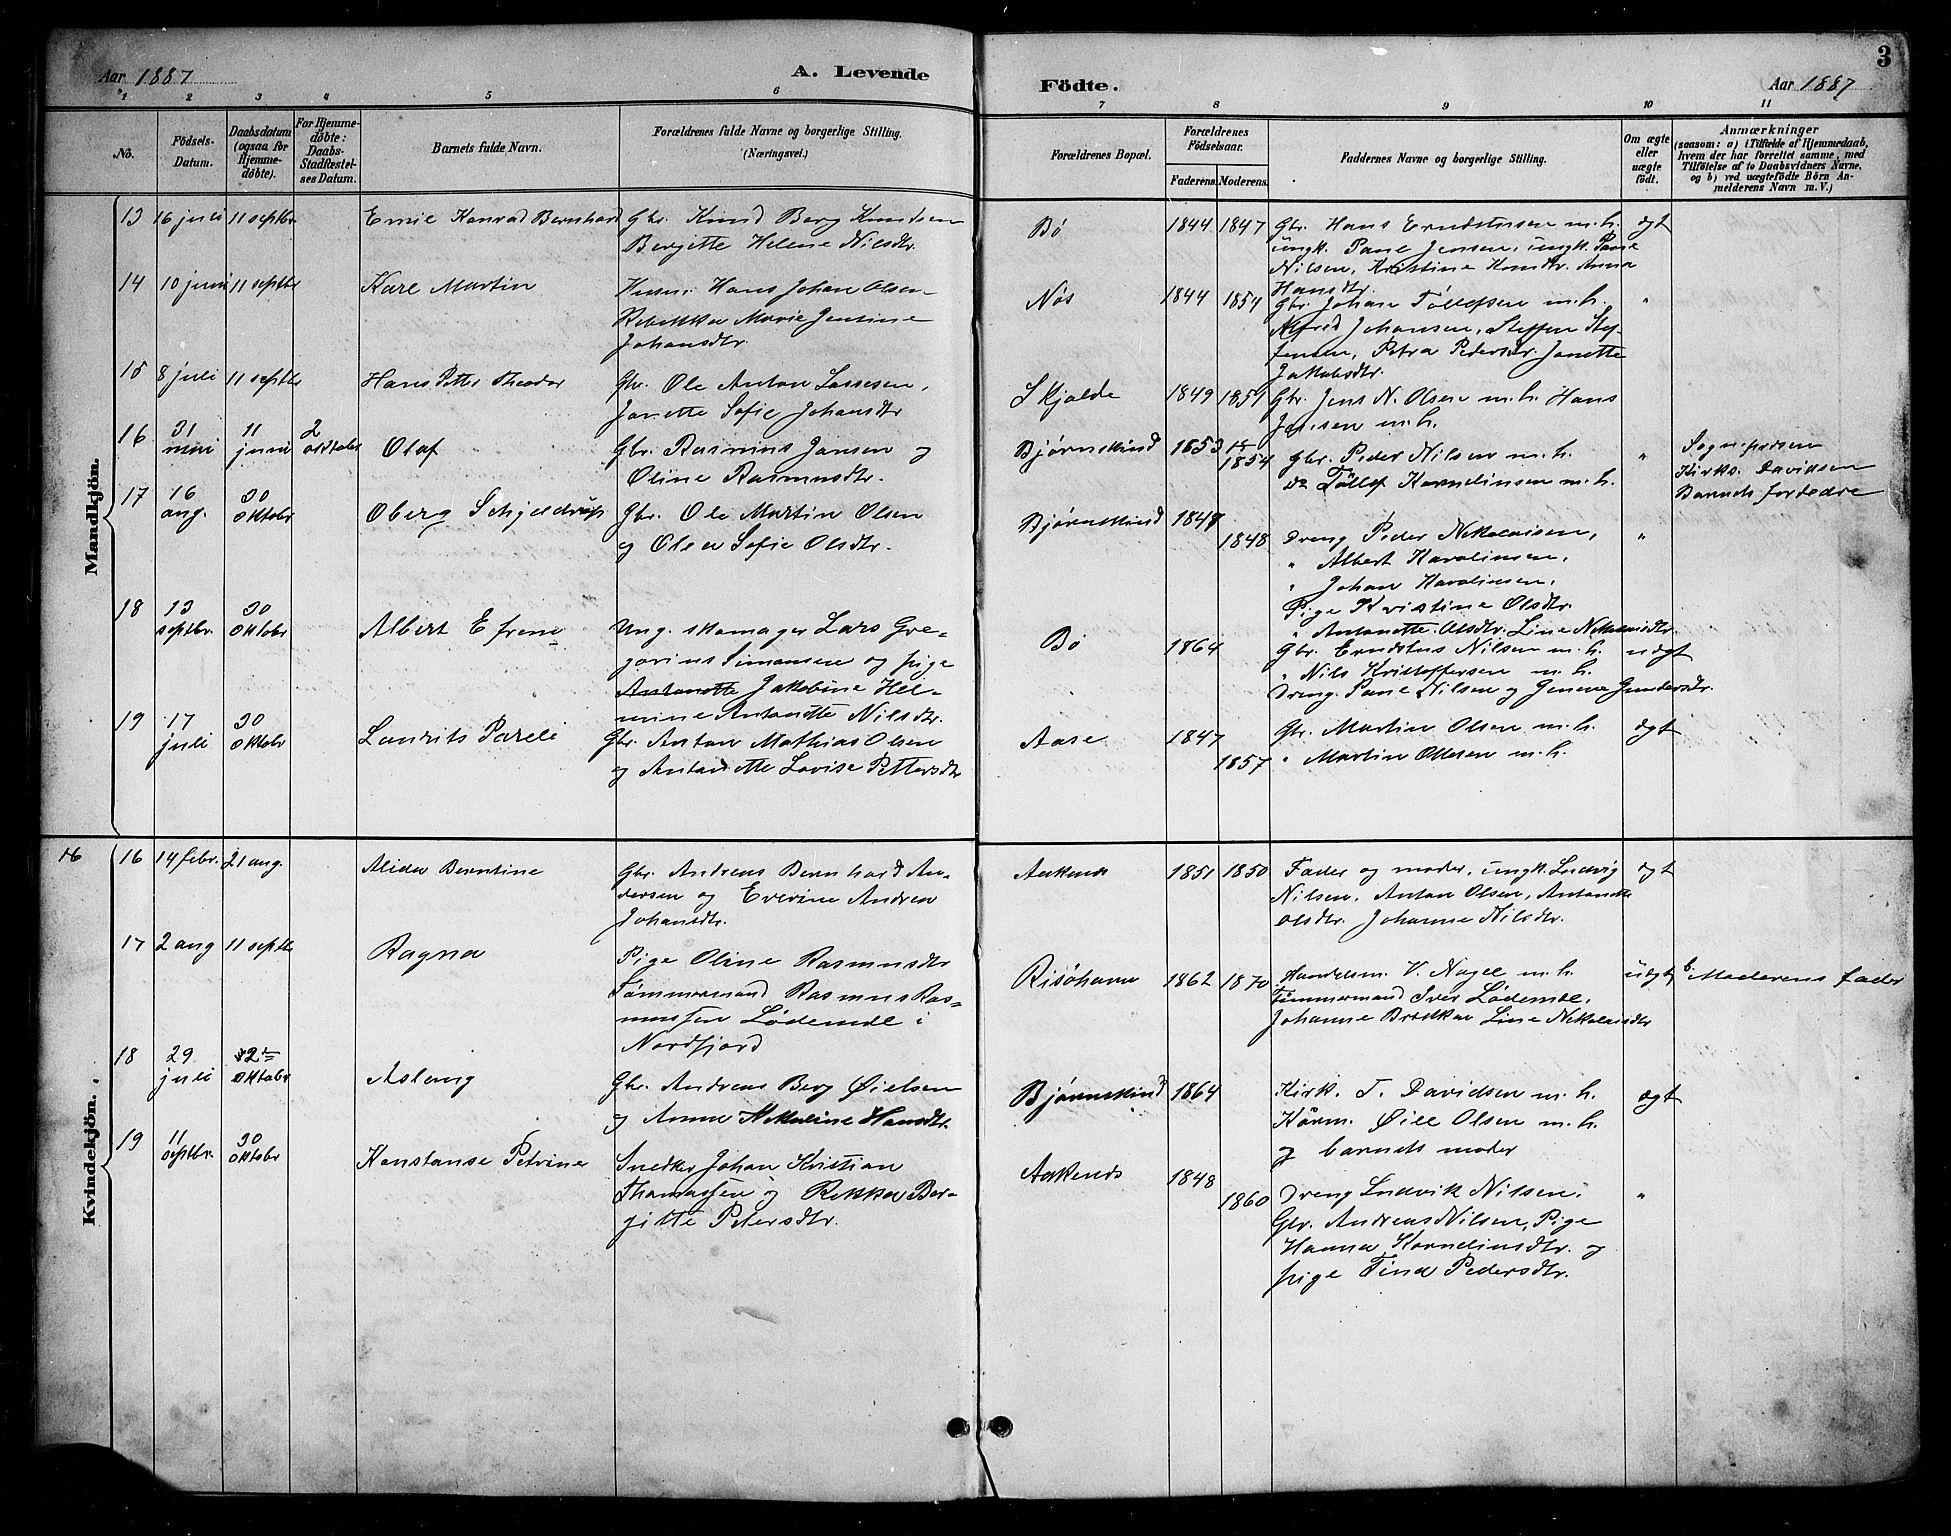 Aar 1887
A. Levende
Födte.
Aar 1887
3
1 2 3 4 5 6 7 8 9 10 11
No.
Födsels-
Datum.
Daabsdatum
(ogsaa for
Hjemme-
döbte).
For Hjemme-
döbte:
Daabs-
Stadfæstel-
ses Datum.
Barnets fulde Navn.
Forældrenes fulde Navne og borgerlige Stilling.
(Næringsvei.)
Forældrenes Bopæl.
Forældrenes
Födselsaar.
Faderens. Moderens.
Faddernes Navne og borgerlige Stilling.
Om ægte
eller
uægte
födt.
Anmærkninger
(saasom: a) i Tilfælde af Hjemmedaab,
hvem der har forrettet samme, med
Tilföielse af to Daabsvidners Navne,
og b) ved uægtefödte Börn An-
melderens Navn m. V.)
Mandkjön.
13 16 juli 11 septbr Konrad Bernhard Gbr. Knud Berg Knudsen
Berjette Helene Nilsdtr.
Bö 1844 1847 Gbr. Hans m. h. ægt
ungk. Jensen, ungk.
Nilsen, Kristine Anna
Hansdtr.
14 10 juni 11 septbr Karl Martin Hans Johan Olsen
Rebekka Marie Jentine
Johansdtr.
Nös 1844 1854 Gbr. Johan Töllefsen m. h. "
Alfrid Johansen, Steffen Stef-
fensen, Petra Pedersdtr. Janette
Jakobsdtr.
15 8 juli 11 septbr Hans Petter Theodor Gbr. Ole Anton Lassesen,
Janette Sofie Johansdtr
Skjolde 1849 1851 Gbr. Jens N. Olsen m. h. Hans
Jensen m. h.
16 31
mai 11
juni 2
oktober Olaf Gbr. Rasmus Jansen og
Oline Rasmusdtr.
Bjørnskind 1853 1854 Gbr. Peder Nilsen m. h. "
Do Töllef Kornelinsen m. h.
Kirks. Davidsen
17 16
aug. 30
oktobr Oberg Schjeldrup Gbr. Ole Martin Olsen
og Olea Sofie Olsdtr.
Bjørnskind 1848 Dreng Peder Nekolaisen, "
" Albert Karolinsen,
" Johan Karolinsen,
Pige Kristine Olsdtr.
" Antonette Olsdtr. Line Nekolaisdtr.
18 13
septbr. 30
oktobr Albert Efrem Ung. skomager Lars Gre-
gorius Simonsen og pige
Antonette Jakobine Hel-
mine Antonette Nilsdtr.
Bö 1864 Gbr. Nilsen m. h. uægt
" Nils Kristoffersen m. h.
Dreng. Nilsen og Gundersdtr.
19 17
juli 30
oktobr Laurits Pareli Gbr. Anton Mathias Olsen
og Antonette Lovise Pettersdtr
Aase 1847 1857 Gbr. Martin Olsen m. h. ægt
" Martin m. h.
Kvindekjön.
16 16 14 febr. 21 aug. Alida Berntine Gbr. Andreas Bernhard An-
dersen og Everine Andrea
Johansdtr.
Aakenes 1851 1850 Fader og moder, ungk. Ludvig ægt
Nilsen, Anton Olsen, Antonette
Olsdtr. Johanne Nilsdtr.
17 2 aug 11 septbr Ragna Pige Oline Rasmusdtr
Tømmermand Rasmus Ras-
mussen Lødemel i
Nordfjord
Risöhavn 1862 1870 Handelsm. V. Nagel m. h. uægt b. Moderens fader
Tømmermand Iver Lødemel,
Johanne Line Nekolaisdtr
18 29
juli 2
oktobr Aslaug Gbr. Andreas Berg Øielsen
og Anna Nekoline Hansdtr.
Bjørnskind 1864 Kirk. T. Davidsen m. h. ægt
Kårm. Øiel Olsen m. h.
og barnets moder
19 11
septbr. 30
oktobr Konstanse Petrine Snedker Johan Kristian
Thomassen og Rekka Ber-
gitte Petersdtr.
Aakenes 1848 1860 Dreng Ludvik Nilsen, "
Gbr. Andreas Nilsen, Pige
Hanna Kornelinsdtr. og
pige Tina Pedersdtr.